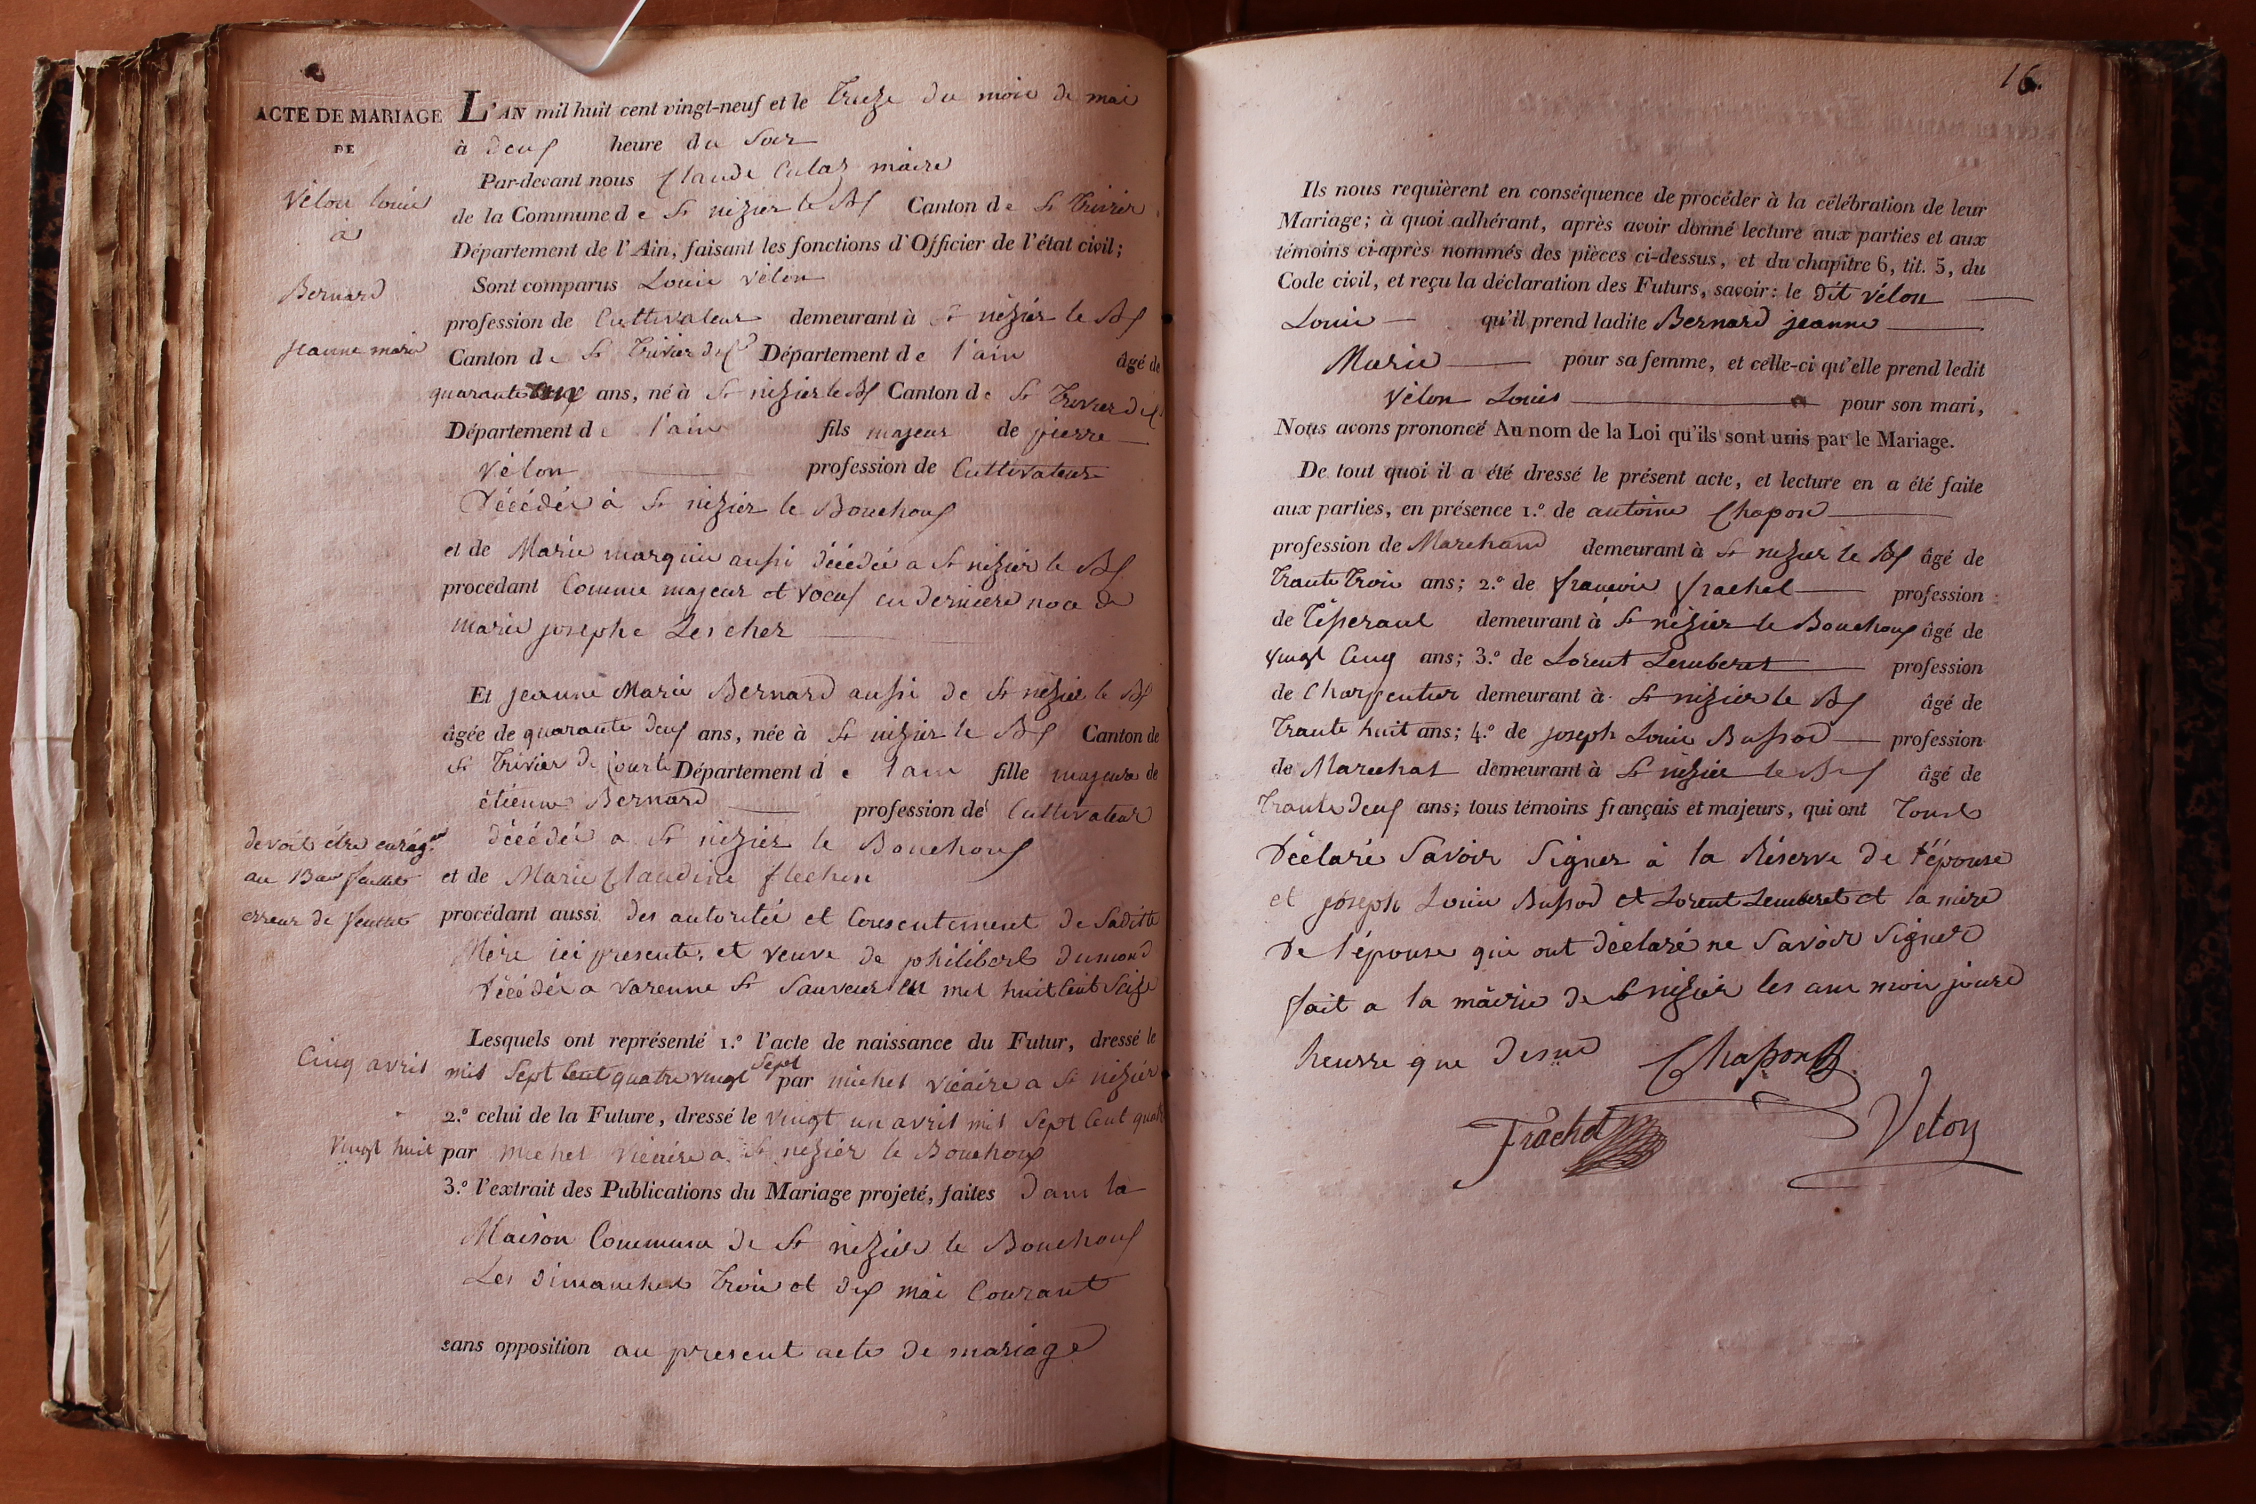 ACTE DE MARIAGE
DE
Vélon Louis
à
Bernard
jeanne marie
L'AN mil huit cent vingt-neuf et le Treize du mois de mai
à deux heure du Soir
Par-devant nous Claude Calas maire
de la Commune de St nizier le Bx Canton de St Trivier
Département de l'Ain, faisant les fonctions d'Officier de l'état civil;
Sont comparus Louis vélon
profession de Cultivateur demeurant à St nizier le Bx
Canton de St Trivier dex Département de l'ain âgé de
quarante ans, né à St nizier le Bx Canton de St Trivier
Département de l'ain fils majeur de pierre
Vélon profession de Cultivateur
Décédée à St nizier le Bouchoux
et de Marie marquin aussi décédée a St nizier le Bx
procédant Comme majeur et voeuf en derniere noce de
marie josephe Lescher
Et jeanne Marie Bernard aussi de St nizier le Bx
âgée de quarante deux ans, née à St nizier le Bx Canton de
St Trivier de Courte Département de l'ain fille majeure de
étienne Bernard profession de Cultivateur
décédée a St nizier le Bouchoux
devoit être enrég.er
au 13eme feuillet
erreur de feuillet
et de Marie Claudine flechon
procédant aussi des autoritée et Consentement de Saditte
Mère ici presente, et veuve de philibert dumond
Décédée a varenne St Sauveur en mil huit Cent Seize
Lesquels ont représenté 1.º l'acte de naissance du Futur, dressé le
Cinq avril mil Sept Cent quatre vingt Sept par michel vicaire a St nizier
2.º celui de la Future, dressé le vingt un avril mil Sept Cent quatre
Vingt huit par michel vicaire a St nizier le Bouchoux
3.º l'extrait des Publications du Mariage projeté, faites dans la
Maison Commune de St nizier le Bouchoux
Les dimanches trois et dix mai Courant
sans opposition au present acte de mariage
16.
Ils nous requièrent en conséquence de procéder à la célébration de leur
Mariage; à quoi adhérant, après avoir donné lecture aux parties et aux
témoins ci-après nommés des pièces ci-dessus, et du chapitre 6, tit. 5, du
Code civil, et reçu la déclaration des Futurs, savoir: le dit vélon
Louis qu'il prend ladite Bernard jeanne
Marie pour sa femme, et celle-ci qu'elle prend ledit
Vélon Louis pour son mari,
Nous avons prononcé Au nom de la Loi qu'ils sont unis par le Mariage.
De tout quoi il a été dressé le présent acte, et lecture en a été faite
aux parties, en présence 1.º de antoine Chapon
profession de Marchand demeurant à St nizier le Bx âgé de
Trante Trois ans; 2.º de francois frachet profession
de Tisserant demeurant à St nizier le Bouchoux âgé de
vingt Cinq ans; 3.º de Lorent Lemberet profession
de Charpentier demeurant à St nizier le Bx âgé de
Trante huit ans; 4.º de joseph Louis Bussod profession
de Marechal demeurant à St nizier le Bx âgé de
Trante deux ans; tous témoins français et majeurs, qui ont Tous
Déclaré Savoir Signer à la Réserve de l'épouse
et joseph Louis Bussod et Lorent Lemberet et la mère
De l'épouse qui ont déclaré ne Savoir Signer
fait a la mairie de St nizier les an mois jours
heurre que desus Chapon
Frachet Velon